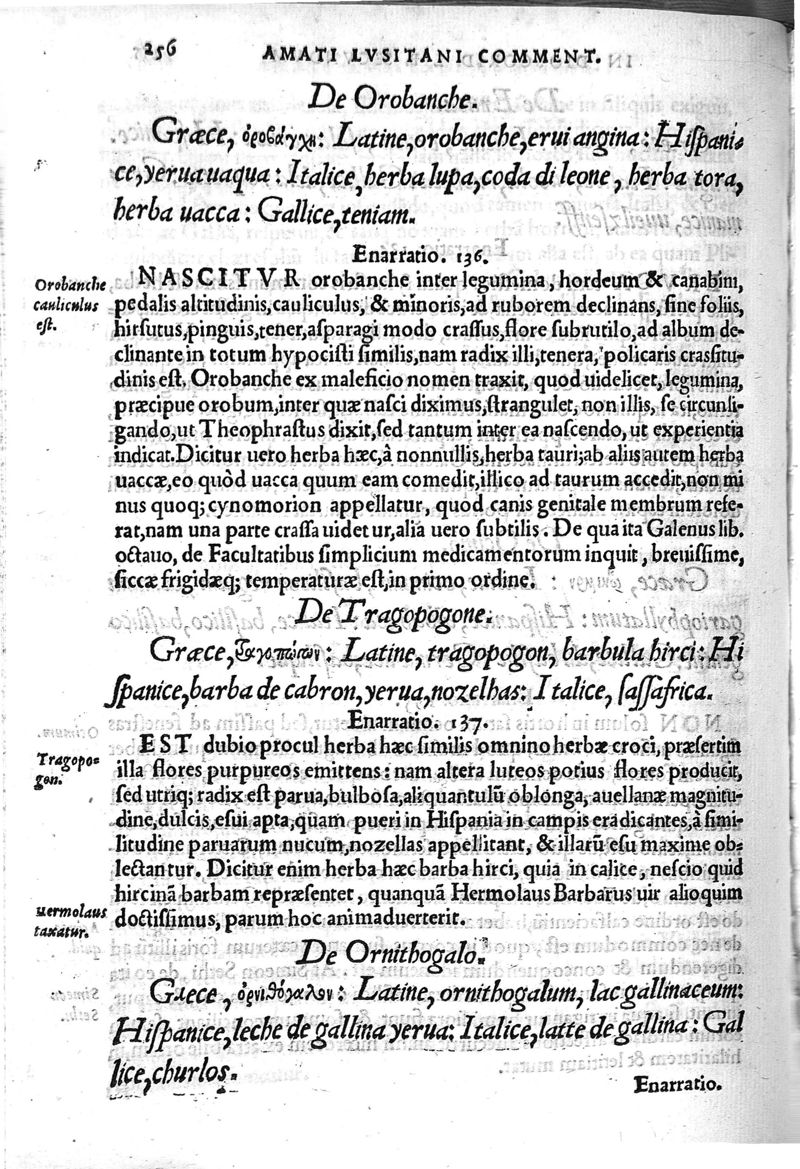 256 AMATI LVSITANI COMMENT.
De Orobanche.
Græce, ὀροβάγχη: Latine, orobanche, erui angina: Hiſpani-
ce, yerua uaqua: Italice, herba lupa, coda di leone, herba tora,
herba uacca: Gallice, teniam.
Enarratio. 136.
Orobanche
cauliculus
eſt.
NASCITVR orobanche inter legumina, hordeum & canabim,
pedalis altitudinis, cauliculus, & minoris, ad ruborem declinans, ſine foliis,
hirſutus, pinguis, tener, aſparagi modo craſſus, flore ſubrutilo, ad album de-
clinante in totum hypociſti ſimilis, nam radix illi, tenera, policaris craſſitu-
dinis eſt. Orobanche ex maleficio nomen traxit, quod uidelicet, legumina,
præcipue orobum, inter quæ naſci diximus, ſtrangulet, non illis, ſe circunli-
gando, ut Theophraſtus dixit, ſed tantum inter ea naſcendo, ut experientia
indicat. Dicitur uero herba hæc, à nonnullis, herba tauri; ab aliis autem herba
uaccæ, eo quòd uacca quum eam comedit, illico ad taurum accedit, non mi
nus quoq; cynomorion appellatur, quod canis genitale membrum refe-
rat, nam una parte craſſa uidetur, alia uero ſubtilis. De qua ita Galenus lib.
octauo, de Facultatibus ſimplicium medicamentorum inquit, breuiſſime,
ſiccæ frigidæq; temperaturæ eſt, in primo ordine.
De Tragopogone.
Græce, τραγοπώγων: Latine, tragopogon, barbula hirci: Hi
ſpanice, barba de cabron, yerua, nozelhas: Italice, ſaſſafrica.
Enarratio. 137.
Tragopo-
gon.
EST dubio procul herba hæc ſimilis omnino herbæ croci, præſertim
illa flores purpureos emittens: nam altera luteos potius flores producit,
ſed utriq; radix eſt parua, bulboſa, aliquantulū oblonga, auellanæ magnitu-
dine, dulcis, eſui apta, quam pueri in Hiſpania in campis eradicantes, à ſimi-
litudine paruarum nucum, nozellas appellitant, & illarū eſu maxime ob-
lectantur. Dicitur enim herba hæc barba hirci, quia in calice, neſcio quid
hircinā barbam repræſentet, quanquā Hermolaus Barbarus uir alioquim
doctiſſimus, parum hoc animaduerterit.
Hermolaus
taxatur.
De Ornithogalo.
Græce, ὀρνιθόγαλον: Latine, ornithogalum, lac gallinaceum:
Hiſpanice, leche de gallina yerua: Italice, latte de gallina: Gal
lice, churlos.
Enarratio.